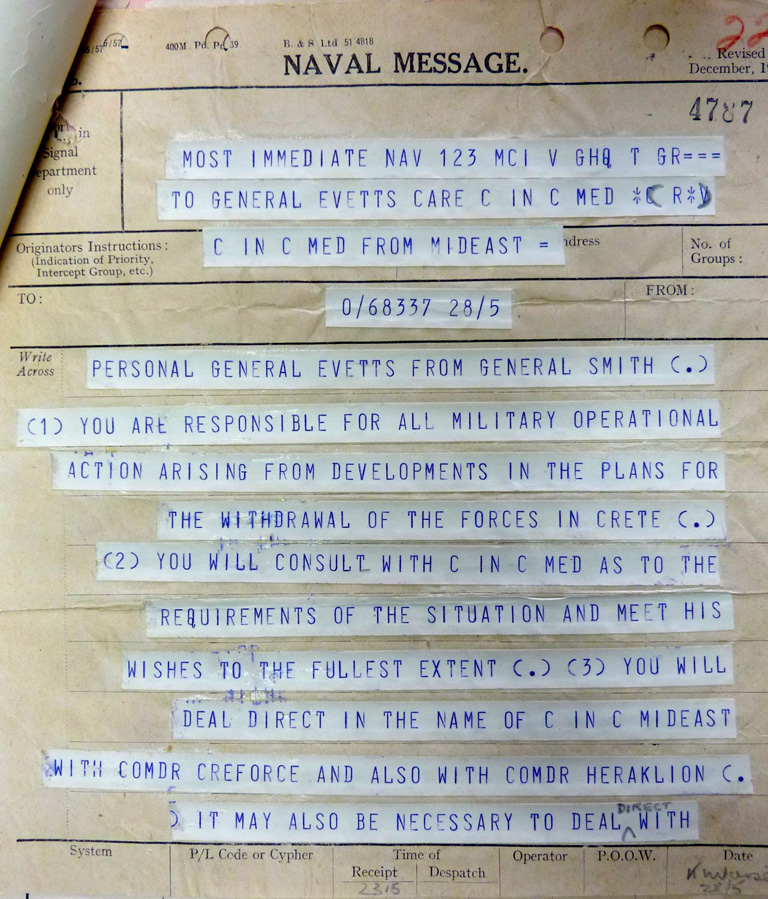 400M. Pd.
39
B. & S. Ltd 51 4818
22
NAVAL MESSAGE.
Revised
December,
4787
in
Signal
epartment
only
MOST IMMEDIATE NAV 123 MCI V GHQ T GR===
TO GENERAL EVETTS CARE C IN C MED *( R*)
Originators Instructions:
(Indication of Priority,
Intercept Group, etc.)
C IN C MED FROM MIDEAST =
ddress
No. of
Groups:
TO:
0/68337 28/5
FROM:
Write
Across
PERSONAL GENERAL EVETTS FROM GENERAL SMITH (.)
(1) YOU ARE RESPONSIBLE FOR ALL MILITARY OPERATIONAL
ACTION ARISING FROM DEVELOPMENTS IN THE PLANS FOR
THE WITHDRAWAL OF THE FORCES IN CRETE (.)
(2) YOU WILL CONSULT WITH C IN C MED AS TO THE
REQUIREMENTS OF THE SITUATION AND MEET HIS
WISHES TO THE FULLEST EXTENT (.) (3) YOU WILL
DEAL DIRECT IN THE NAME OF C IN C MIDEAST
WITH COMDR CREFORCE AND ALSO WITH COMDR HERAKLION (.
DIRECT
) IT MAY ALSO BE NECESSARY TO DEAL WITH
System
P/L Code or Cypher
Time of
Receipt
Despatch
Operator
P.O.O.W.
Date
2315
28/5